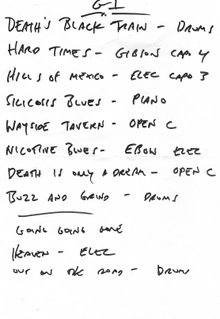 G-I
DEATH'S BLACK TRAIN - DRUMS
HARD TIMES - GIBSON CAPO 4
HILLS OF MEXICO - ELEC CAPO 3
SILICOSIS BLUES - PIANO
WAYSIDE TAVERN - OPEN C
NICOTINE BLUES - EBOW ELEC
DEATH IS ONLY A DREAM - OPEN C
BUZZ AND GRIND - DRUMS
GOING GOING GONE
HEAVEN - ELEC
OUT ON THE ROAD - DRUMS